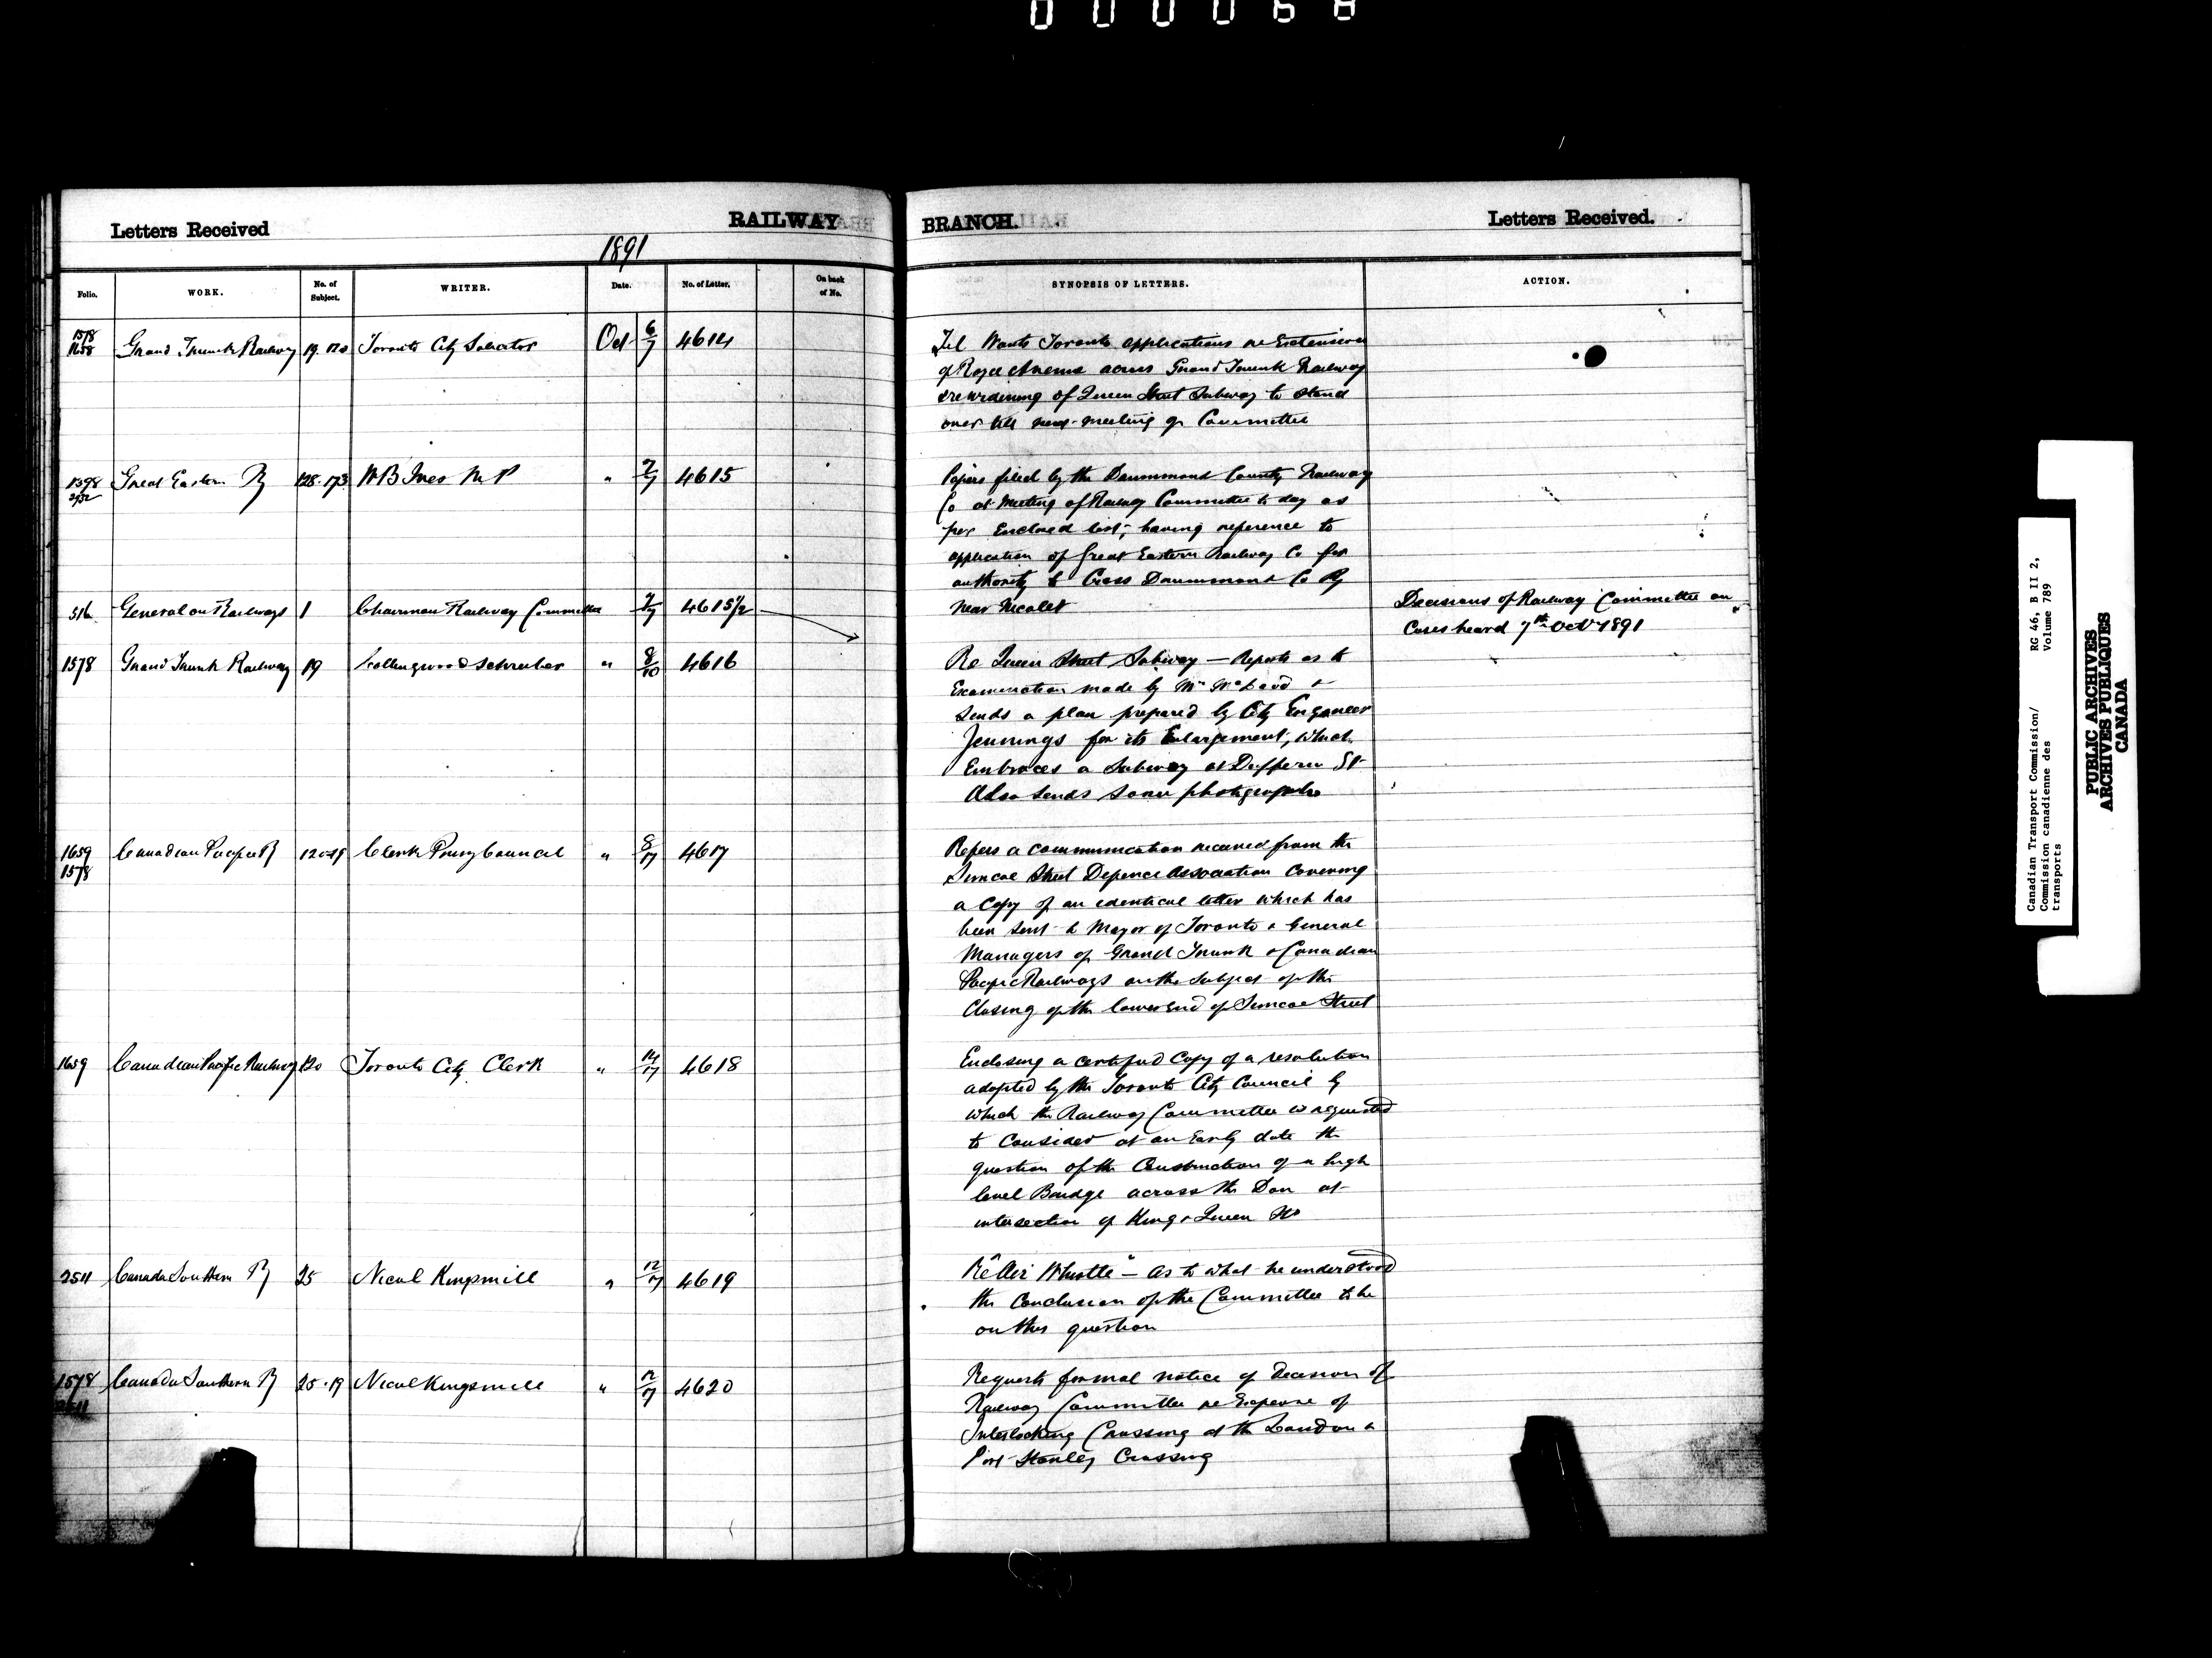 000068
Letters Received
RAILWAY
BRANCH.
Letters Received.
1891
Folio.
WORK.
No. of Subject.
WRITER.
Date.
No. of Letter.
On back of No.
SYNOPSIS OF LETTERS.
ACTION.
1578
1658
Grand Trunk Railway 19.120 Toronto City Solicitor Oct 6/7 4614
Tel Wants Toronto applications re Extension
of Royce Avenue across Grand Trunk Railway
& re widening of Queen Street Subway to stand
over till next meeting of Committee
1598
Great Eastern Ry 128.173 W B Ives M P " 7/7 4615
Papers filed by the Drummond County Railway
Co at Meeting of Railway Committee to day as
per Enclosed list, having reference to
application of Great Eastern Railway Co for
authority to Cross Drummond Co Ry
near Nicolet
516 General on Railways 1 Chairman Railway Committee 7/7 4615½
Decisions of Railway Committee on
Cases heard 7th Oct 1891
1578 Grand Trunk Railway 19 Collingwood Schreiber " 8/10 4616
Re Queen Street Subway — Reports as to
Examination made by Mr
sends a plan prepared by City Engineer
Jennings for its Enlargement, which
Embraces a Subway at Dufferin St
Also sends some photographs
1659
1578
Canadian Pacific R 120.19 Clerk Privy Council " 8/17 4617
Refers a communication received from the
Simcoe Street Defence Association Covering
a Copy of an identical letter which has
been sent to Mayor of Toronto & General
Managers of Grand Trunk & Canadian
Pacific Railways on the subject of the
Closing of the lower End of Simcoe Street
1659 Canadian Pacific Railway 120 Toronto City Clerk " 14/17 4618
Enclosing a certified Copy of a resolution
adopted by the Toronto City Council by
which the Railway Committee is requested
to Consider at an Early date the
question of the Construction of a high
level Bridge across the Don at
intersection of King & Queen Sts
2511 Canada Southern Ry 25 Nicol Kingsmill " 12/17 4619
Re "Air Whistle" — As to what he understood
the Conclusion of the Committee to be
on this question
1578
2511
Canada Southern Ry 25.19 Nicol Kingsmill " 12/17 4620
Requests formal notice of Decision of
Railway Committee re Expense of
Interlocking Crossing at the London &
Port Stanley Crossing
Canadian Transport Commission/
Commission canadienne des
transports
RG 46, B II 2,
Volume 789
PUBLIC ARCHIVES
ARCHIVES PUBLIQUES
CANADA